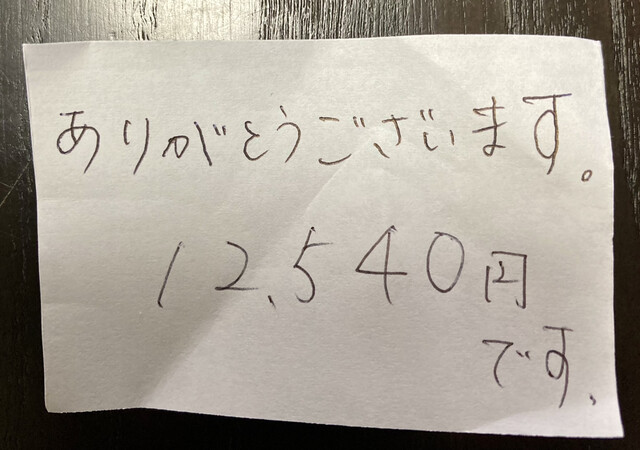 ありがとうございます。
12,540円
です.